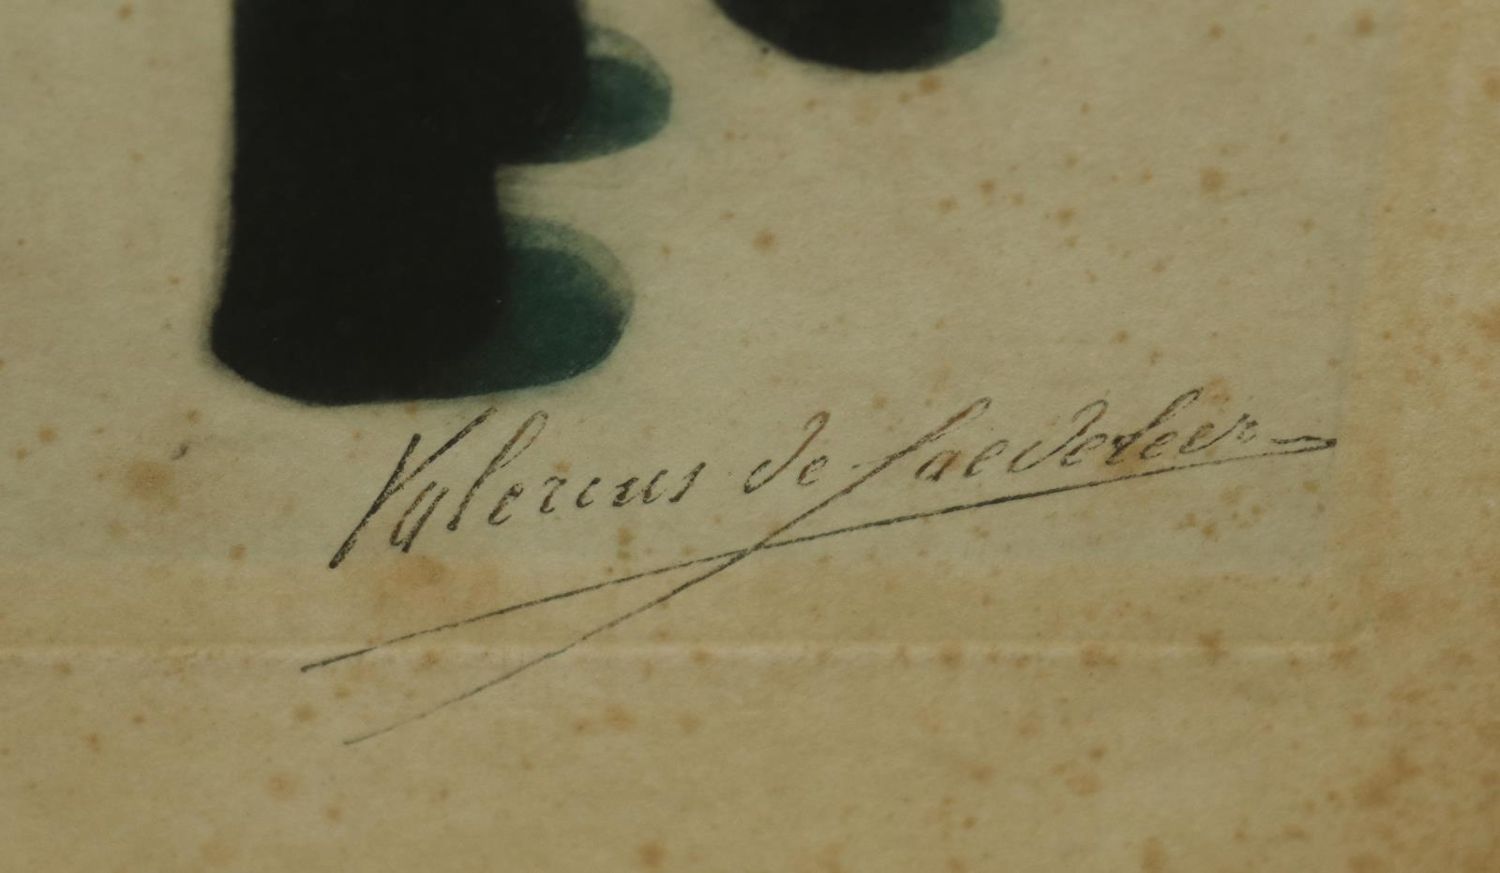 Valerius de Saedeleer